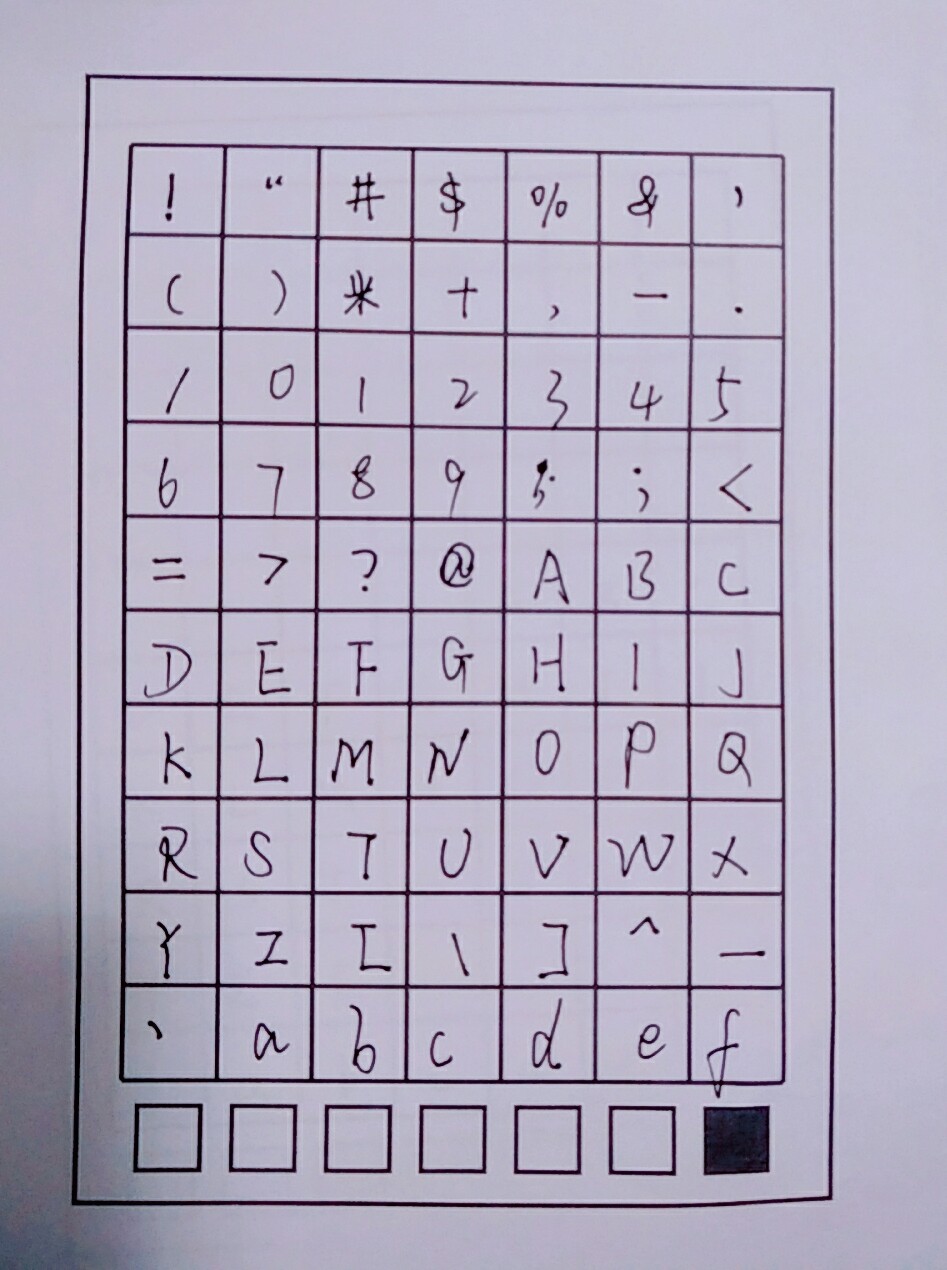 ! “ # $ % & '
( ) * + , - .
/ 0 1 2 3 4 5
6 7 8 9 ; <
= > ? @ A B C
D E F G H I J
K L M N O P Q
R S T U V W X
Y Z [ \ ] ^ _
` a b c d e f